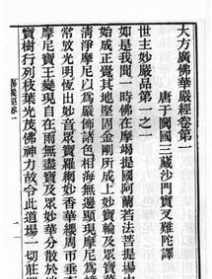 大方廣佛華嚴經卷第一
唐于闐國三藏沙門實叉難陀譯
世主妙嚴品第一之一
如是我聞一時佛在摩竭提國阿蘭若法菩提場
始成正覺其地堅固金剛所成上妙寶輪及眾寶
清淨摩尼以爲嚴飾諸色相海無邊顯現摩尼爲
常放光明恒出妙音眾寶羅網妙香華纓周帀垂
摩尼寶王變現自在雨無盡寶及眾妙華分散於地
寶樹行列枝葉光茂佛神力故令此道場一切莊